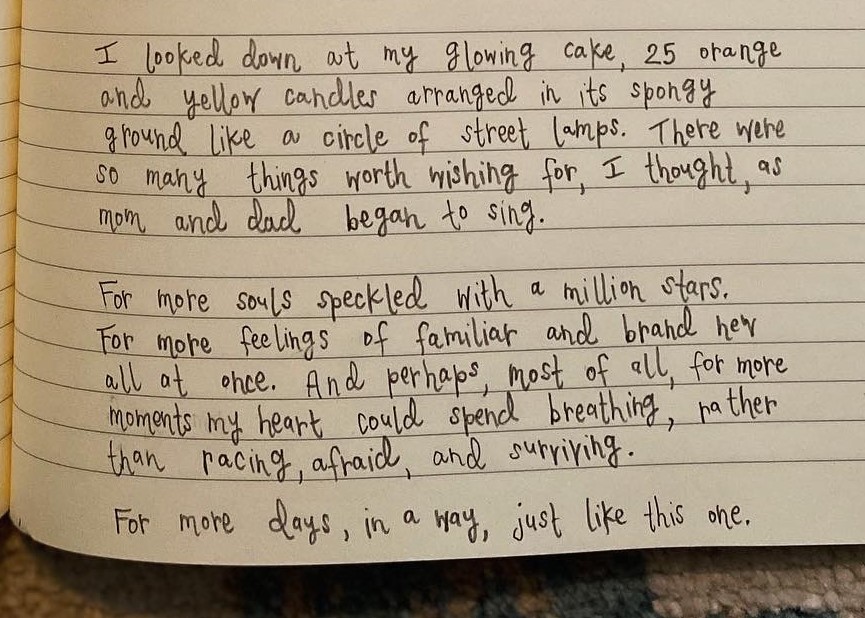 I looked down at my glowing cake, 25 orange
and yellow candles arranged in its spongy
ground like a circle of street lamps. There were
so many things worth wishing for, I thought, as
mom and dad began to sing.
For more souls speckled with a million stars.
For more feelings of familiar and brand new
all at once. And perhaps, most of all, for more
moments my heart could spend breathing, rather
than racing, afraid, and surviving.
For more days, in a way, just like this one.